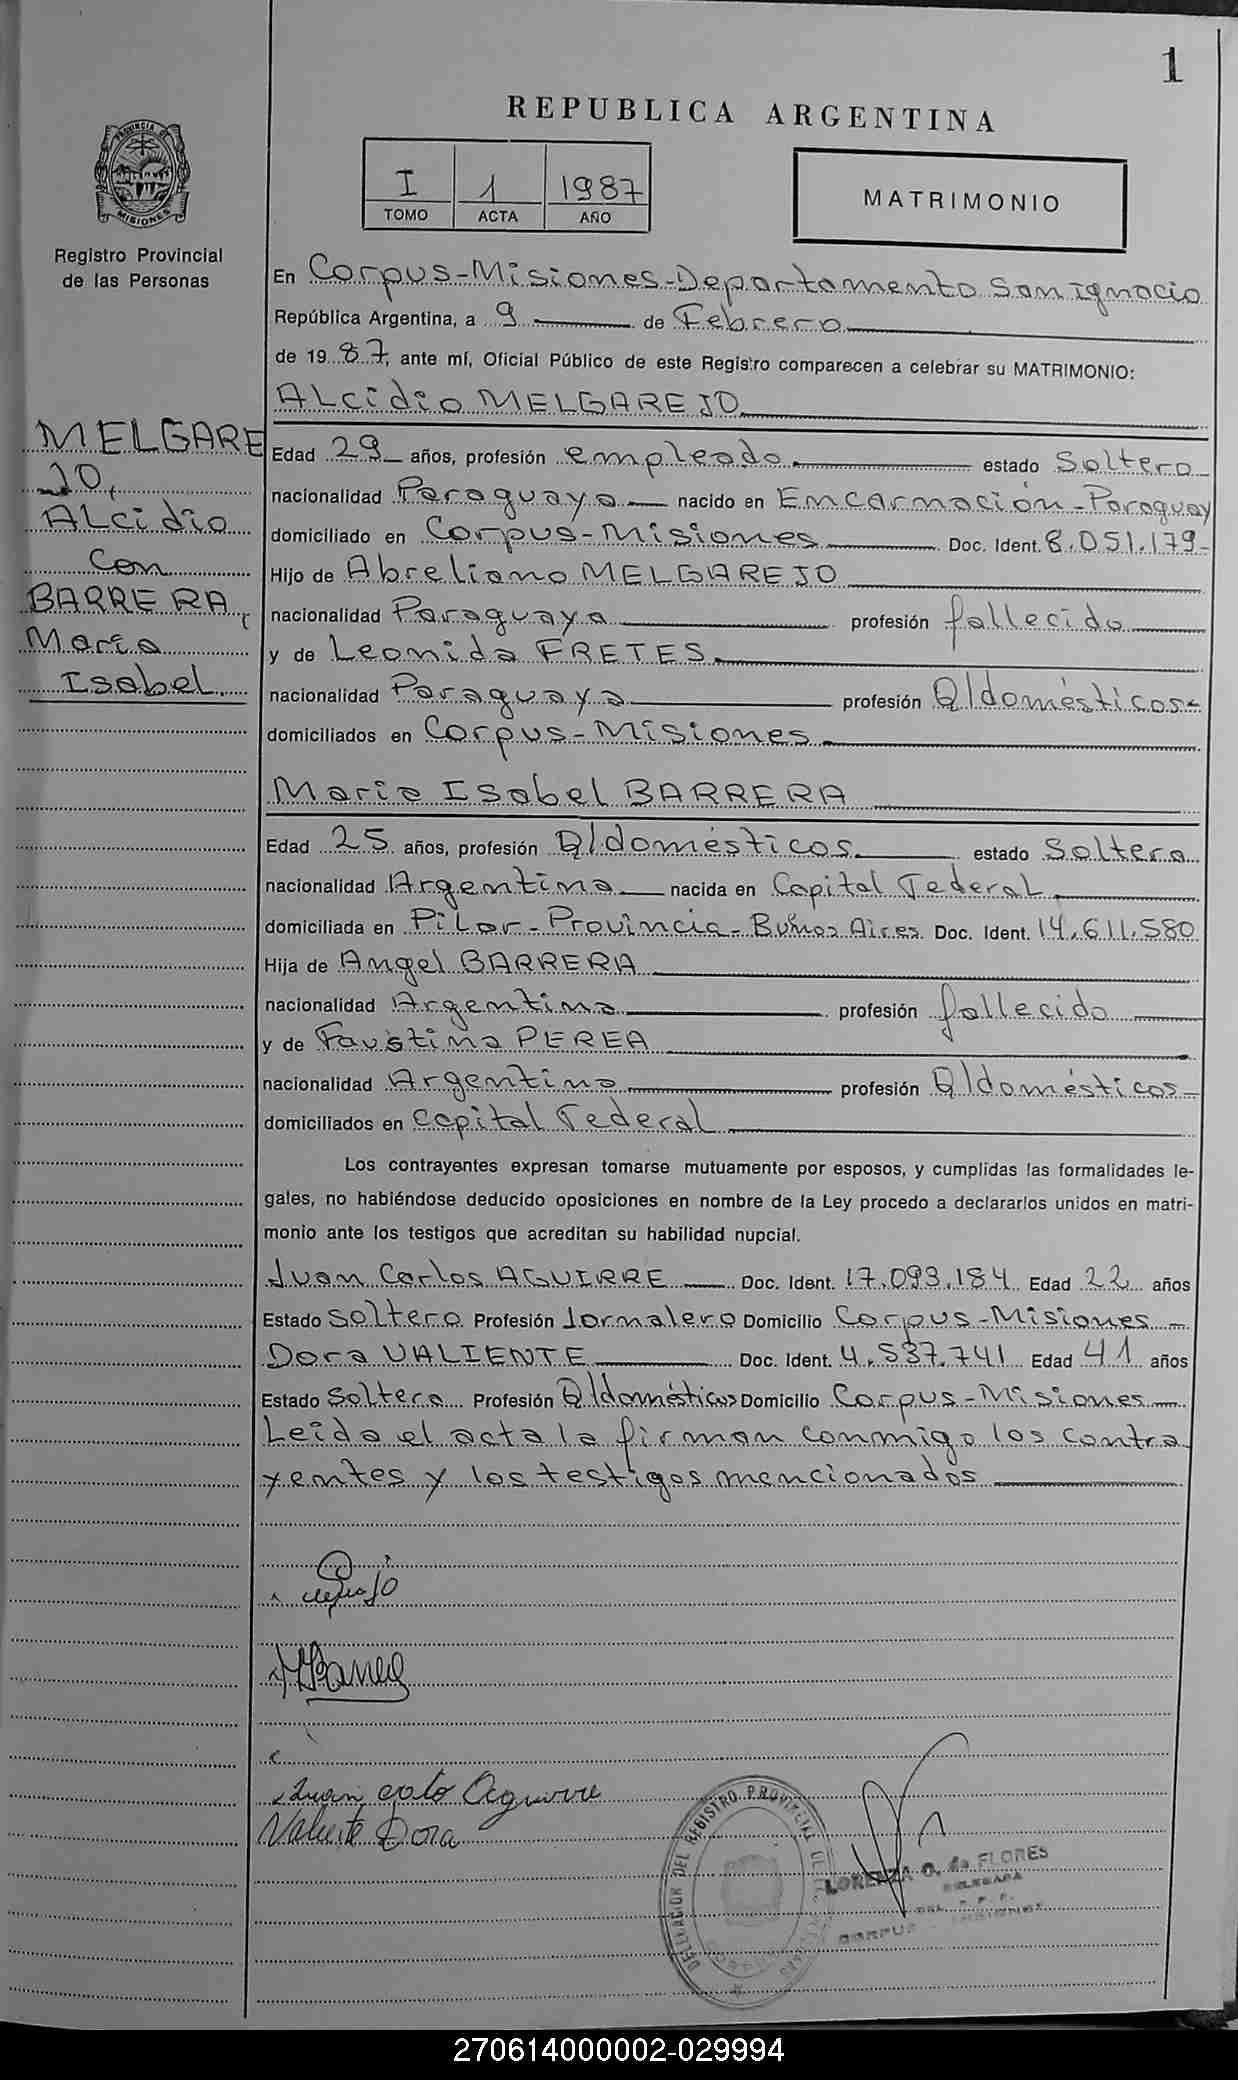 1
REPUBLICA ARGENTINA
I 1 1987
TOMO ACTA AÑO
MATRIMONIO
PROVINCIA DE
MISIONES
Registro Provincial
de las Personas
MELGARE
JO,
ALcidio
Con
BARRERA,
María
Isabel
En Corpus-Misiones-Departamento San Ignacio
República Argentina, a 9 de Febrero
de 1987, ante mí, Oficial Público de este Registro comparecen a celebrar su MATRIMONIO:
ALcidio MELGAREJO
Edad 29 años, profesión empleado estado Soltero
nacionalidad Paraguaya nacido en Encarnación-Paraguay
domiciliado en Corpus-Misiones Doc. Ident. 8.051.179-
Hijo de Abreliano MELGAREJO
nacionalidad Paraguaya profesión fallecido
y de Leonida FRETES
nacionalidad Paraguaya profesión Q/domésticos-
domiciliados en Corpus-Misiones
María Isabel BARRERA
Edad 25 años, profesión Q/domésticos estado Soltera
nacionalidad Argentina nacida en Capital Federal
domiciliada en Pilar-Provincia-Buenos Aires Doc. Ident. 14.611.580
Hija de Angel BARRERA
nacionalidad Argentina profesión fallecido
y de Faustina PEREA
nacionalidad Argentina profesión Q/domésticos-
domiciliados en Capital Federal
Los contrayentes expresan tomarse mutuamente por esposos, y cumplidas las formalidades le-
gales, no habiéndose deducido oposiciones en nombre de la Ley procedo a declararlos unidos en matri-
monio ante los testigos que acreditan su habilidad nupcial.
Juan Carlos AGUIRRE Doc. Ident. 17.093.184 Edad 22 años
Estado Soltero Profesión Jornalero Domicilio Corpus-Misiones
Dora VALIENTE Doc. Ident. 4.537.741 Edad 41 años
Estado Soltera Profesión Q/domésticos Domicilio Corpus-Misiones
Leida el acta la firman conmigo los contra
yentes y los testigos mencionados
Juan Aguirre
Dora
DELEGACION DEL REGISTRO PROVINCIAL DE
LORENZA O. de FLORES
DELEGADA
CORPUS - MISIONES
270614000002-029994